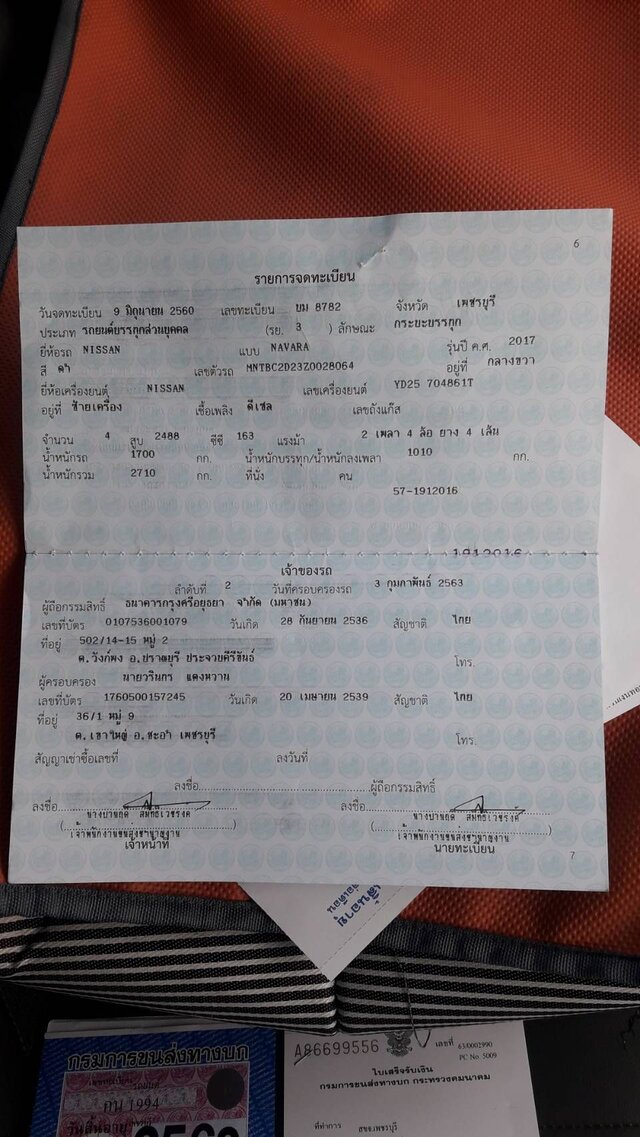 6
รายการจดทะเบียน
วันจดทะเบียน 9 มิถุนายน 2560 เลขทะเบียน บม 8782 จังหวัด เพชรบุรี
ประเภท รถยนต์บรรทุกส่วนบุคคล (รย. 3 ) ลักษณะ กระบะบรรทุก
ยี่ห้อรถ NISSAN แบบ NAVARA รุ่นปี ค.ศ. 2017
สี ดำ เลขตัวรถ MNTBC2D23Z0028064 อยู่ที่ กลางขวา
ยี่ห้อเครื่องยนต์ NISSAN เลขเครื่องยนต์ YD25 704861T
อยู่ที่ ซ้ายเครื่อง เชื้อเพลิง ดีเซล เลขถังแก๊ส
จำนวน 4 สูบ 2488 ซีซี 163 แรงม้า 2 เพลา 4 ล้อ ยาง 4 เส้น
น้ำหนักรถ 1700 กก. น้ำหนักบรรทุก/น้ำหนักลงเพลา 1010 กก.
น้ำหนักรวม 2710 กก. ที่นั่ง คน
57-1912016
1912016
เจ้าของรถ
ลำดับที่ 2 วันที่ครอบครองรถ 3 กุมภาพันธ์ 2563
ผู้ถือกรรมสิทธิ์ ธนาคารกรุงศรีอยุธยา จำกัด (มหาชน)
เลขที่บัตร 0107536001079 วันเกิด 28 กันยายน 2536 สัญชาติ ไทย
ที่อยู่ 502/14-15 หมู่ 2
ต.วังก์พง อ.ปราณบุรี ประจวบคีรีขันธ์ โทร.
ผู้ครอบครอง นายวรินทร แดงหวาน
เลขที่บัตร 1760500157245 วันเกิด 20 เมษายน 2539 สัญชาติ ไทย
ที่อยู่ 36/1 หมู่ 9
ต.เขาใหญ่ อ.ชะอำ เพชรบุรี โทร.
สัญญาเช่าซื้อเลขที่ ลงวันที่
ลงชื่อ ผู้ถือกรรมสิทธิ์
ลงชื่อ ลงชื่อ
เจ้าพนักงานขนส่งชำนาญงาน เจ้าพนักงานขนส่งชำนาญงาน
เจ้าหน้าที่ นายทะเบียน
7
กรมการขนส่งทางบก
กน 1994
วันสิ้นอายุ
A86699556 เลขที่ 63/0002990
PC No. 5009
ใบเสร็จรับเงิน
กรมการขนส่งทางบก กระทรวงคมนาคม
ที่ทำการ สขจ.เพชรบุรี